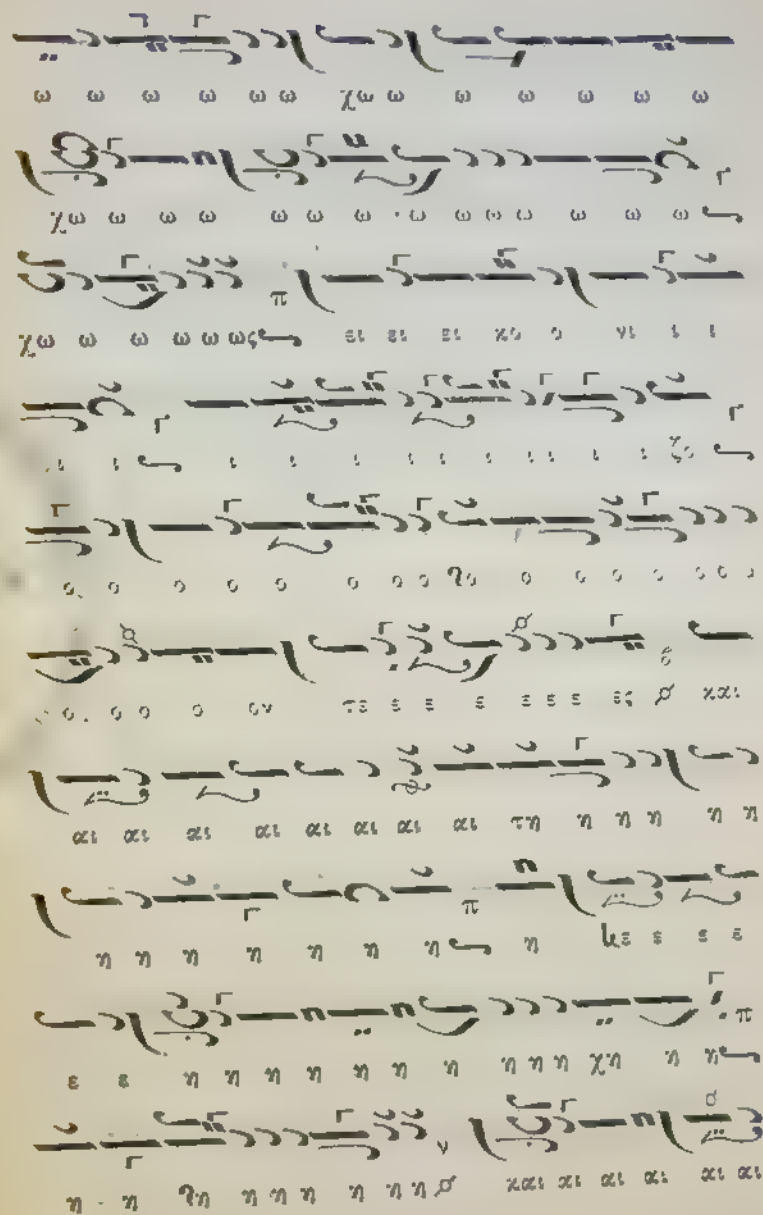 ω ω ω ω ω ω χω ω ω ω ω ω ω
χω ω ω ω ω ω ω ω ω ω ω ω ω ω
χω ω ω ω ω ως π ει ει ει κο ο νι ι ι
ι ι ι ι ι ι ι ι ι ι ι ι
ο ο ο ο ο ο ο ο ο ο ο ο ο ο ο
ο ο ο ο ο ον τε ε ε ε ε ε ε ες και
αι αι αι αι αι αι αι αι τη η η η η η
η η η η η η η π η ε ε ε ε
ε ε η η η η η η η η η η χη η η π
η η η η η η η η η ν και αι αι αι αι αι